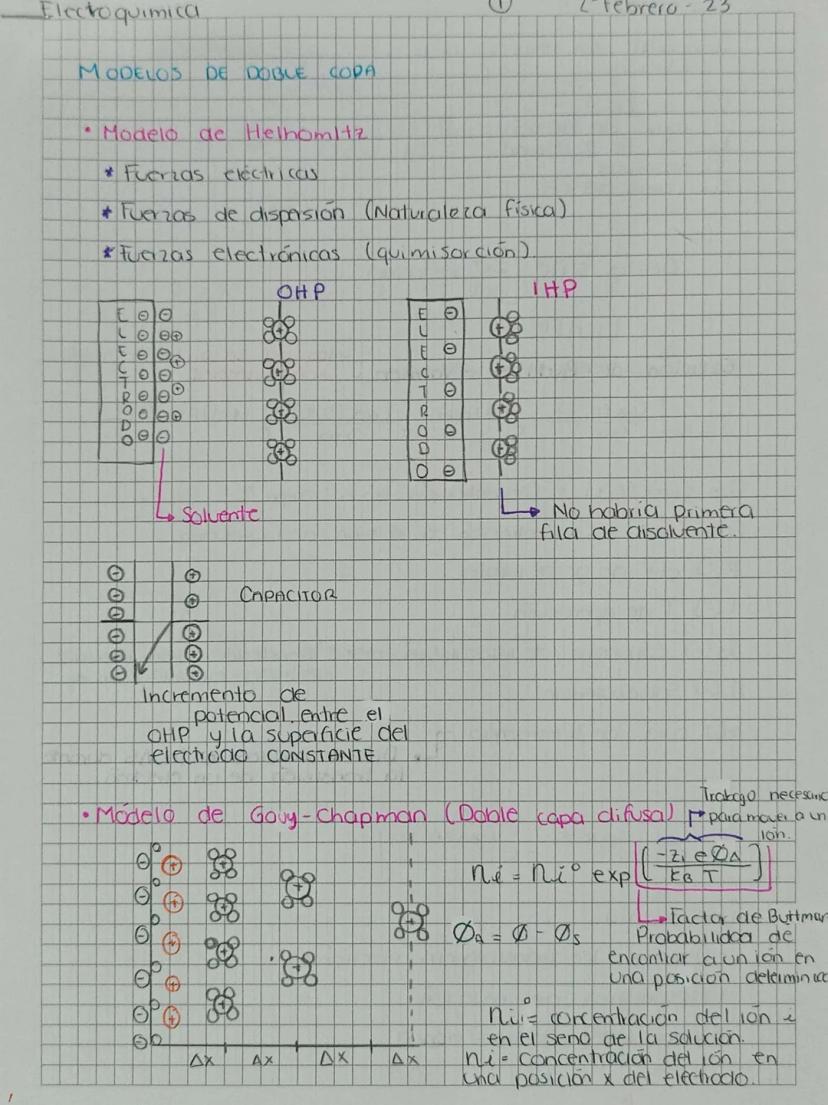 Electroquimica ① 2 Febrero - 23
MODELOS DE DOBLE COPA
• Modelo de Helhomltz
* Fuerzas eléctricas
* Fuerzas de dispersión (Naturaleza física)
* Fuerzas electrónicas (quimisorción)
OHP IHP
ELECTRODO
ELECTRODO
Solvente
No habria primera
fila de disolvente.
CAPACITOR
Incremento de
potencial entre el
OHP y la superficie del
electrodo CONSTANTE
• Módelo de Gouy-Chapman (Doble capa difusa)
Trabajo necesario
para mover a un
ión.
ni = ni° exp[(-zi e ØΔ / KB T)]
Factor de Bultman
ØΔ = Ø - Øs
Probabilidad de
encontrar a un ión en
una posición determinada
ni° = concentración del ión i
en el seno de la solución.
ni = concentración del ión en
una posición x del electrodo.
Δx Δx Δx Δx